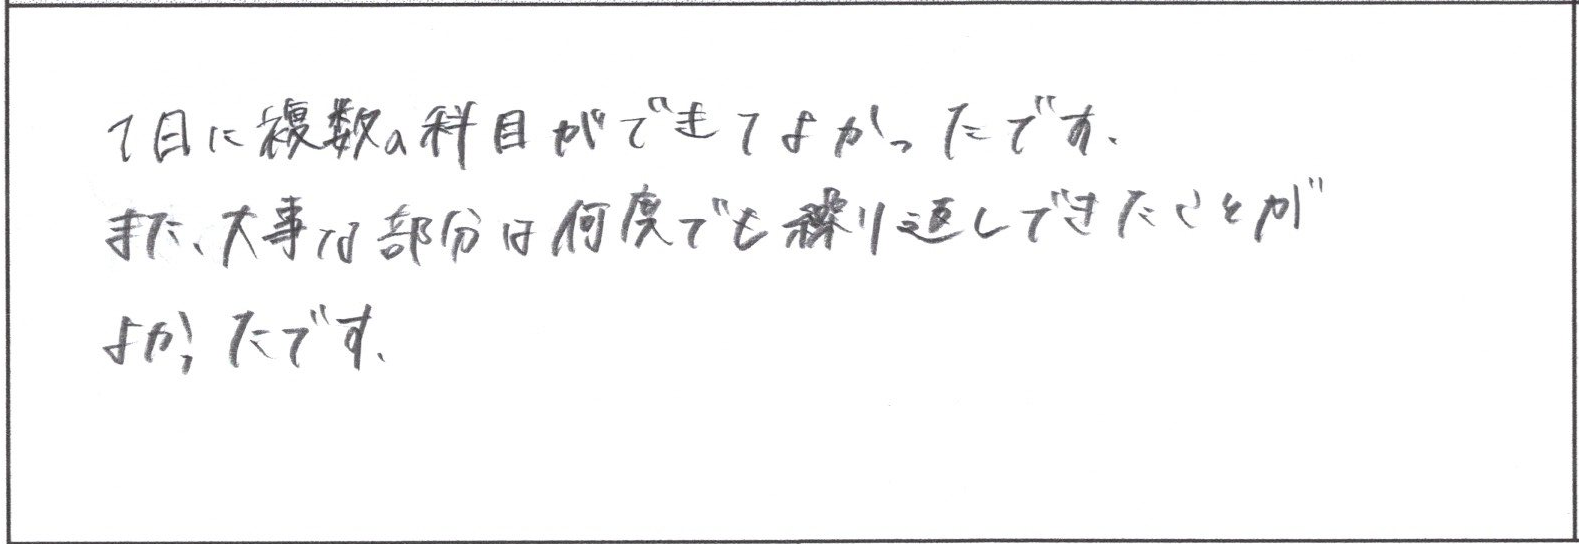 1日に複数の科目ができてよかったです、
また、大事な部分は何度でも繰り返しできたことが
よかったです、